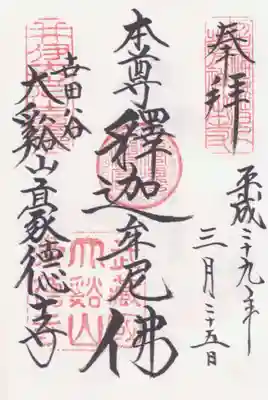 奉拝
平成二十九年
三月二十五日
本尊釋迦牟尼佛
世田ヶ谷
大谿山豪德寺